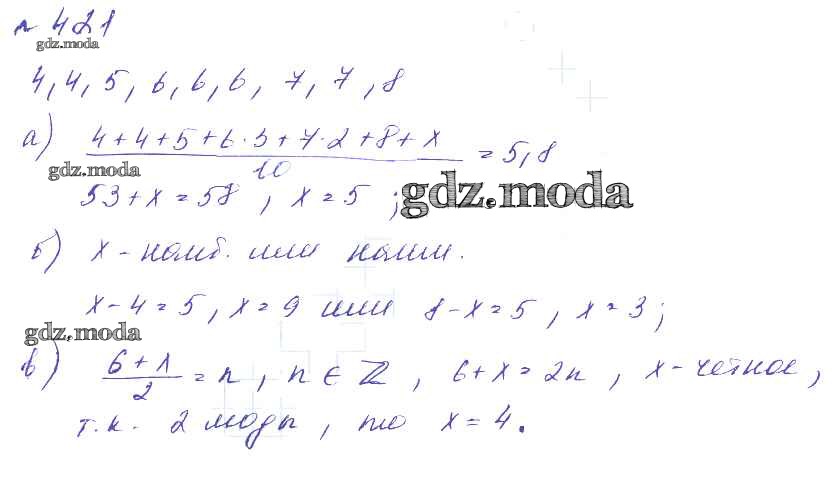 № 421
gdz.moda
4, 4, 5, 6, 6, 6, 7, 7, 8
а) (4+4+5+6·3+7·2+8+x)/10 = 5,8
gdz.moda
53+x=58, x=5; gdz.moda
б) x – наиб. или наим.
x-4=5, x=9 или 8-x=5, x=3;
gdz.moda
в) (6+x)/2 = n, n∈ℤ, 6+x=2n, x – четное,
т.к. 2 моды, то x=4.